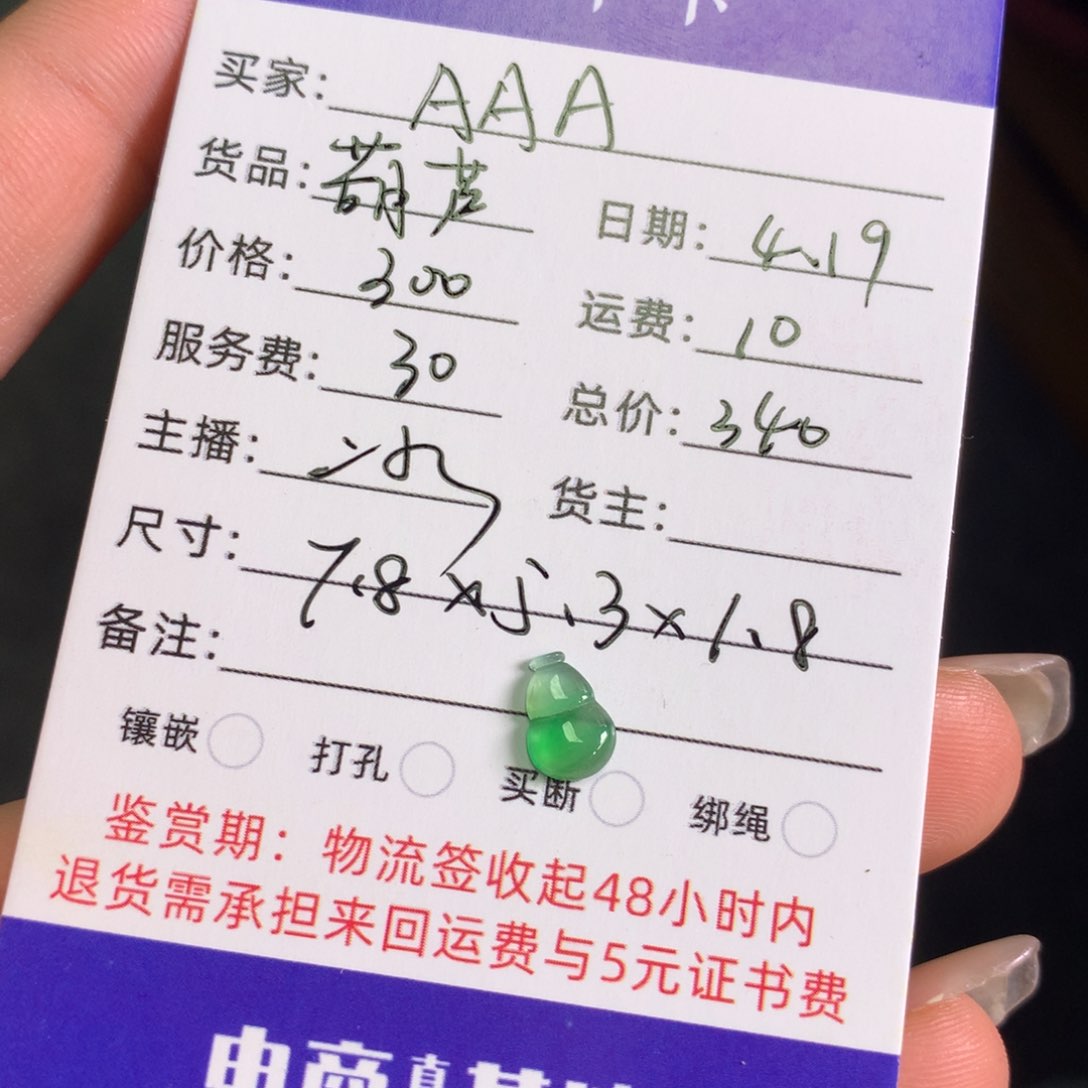 买家: AAA
货品: 葫芦 日期: 4.19
价格: 300 运费: 10
服务费: 30 总价: 340
主播: 冰 货主:
尺寸: 7.8×5.3×1.8
备注:
镶嵌 打孔 买断 绑绳
鉴赏期：物流签收起48小时内
退货需承担来回运费与5元证书费
电商直